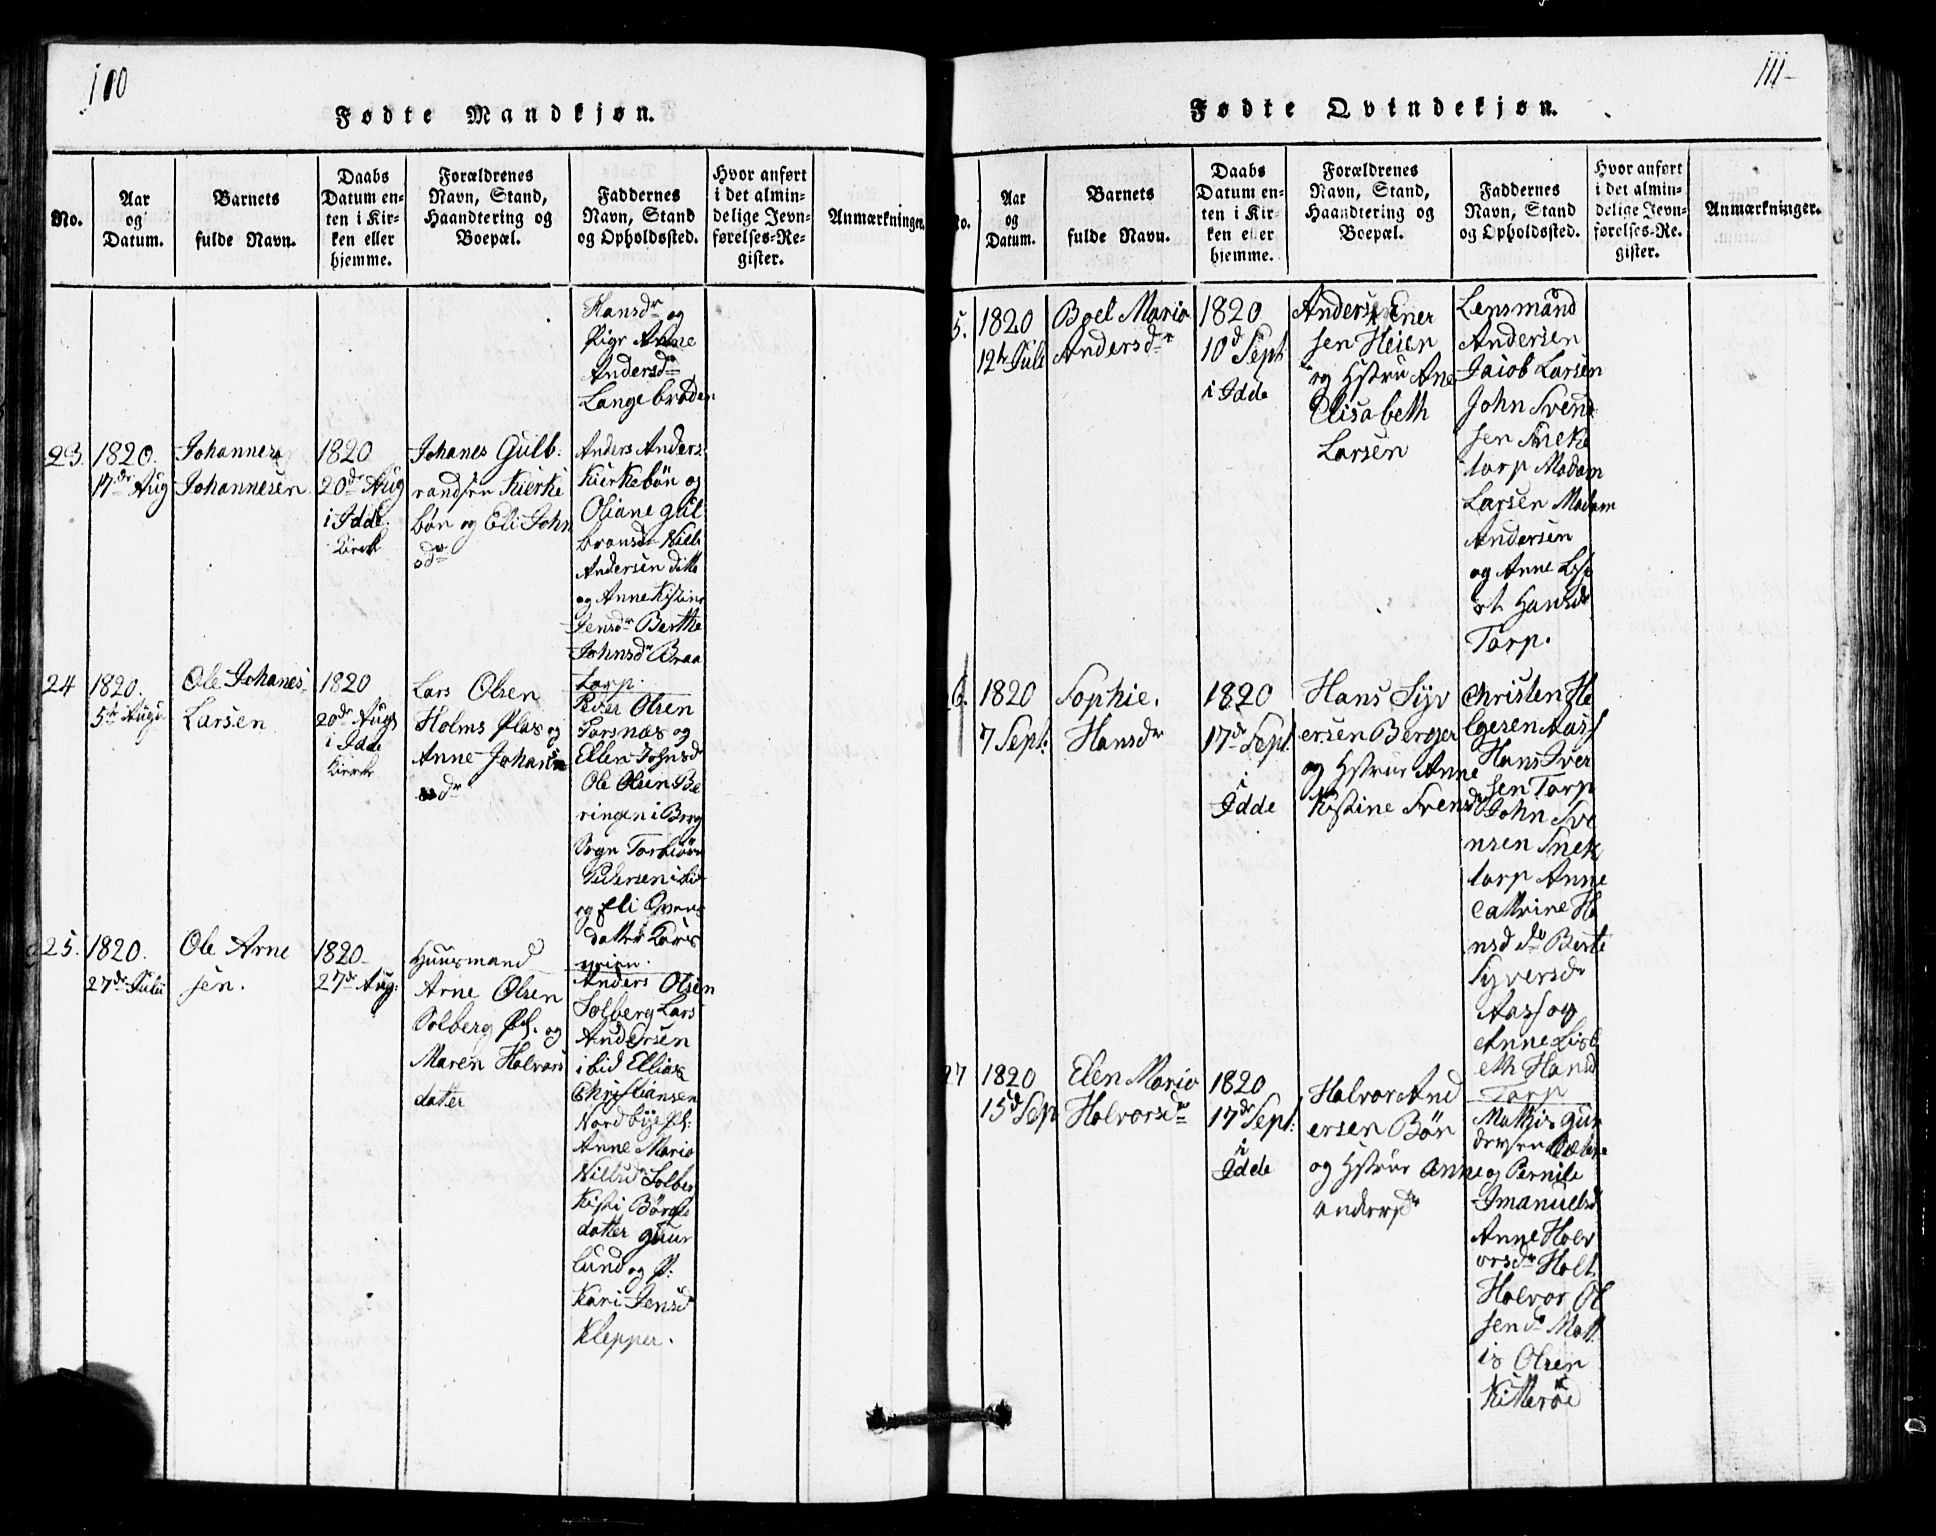 100
Fødte Mandkjøn.
No.
Aar
og
Datum.
Barnets
fulde Navn.
Daabs
Datum en-
ten i Kir-
ken eller
hjemme.
Forældrenes
Navn, Stand,
Haandtering og
Boepæl.
Faddernes
Navn, Stand
og Opholdssted.
Hvor anført
i det almin-
delige Jevn-
førelses-Re-
gister.
Anmærkninger.
Hansdr og
Pigr Anne
Andersdr
Langebroden
23.
1820.
17de Aug
Johannes
Johannesen
1820
20de Aug
i Idde
Kierk
Johanes Gulb:
randsen Kierke
bön og Eli John
dr
Anders Anders
Kierkebön og
Oliane Gul
bransdr Nills
Andersen ditto
og Anne Kistine
Jensdr Berthe
Johnsdr Braa
torp.
24
1820.
5te Augu
Ole Johanes
Larsen
1820
20de Augs
i Idde
Kierke
Lars Olsen
Holms Plas og
Anne Johann
dr
Iver Olsen
Torsnæs og
Ellen Johnsd
Ole Olsen Be
ringen i Berg
Sogn Torbiörn
Pedersen ibid
og Eli Svens
datter
25.
1820.
27de Julii
Ole Arne
sen.
1820
27de Aug:
Huusmand
Arne Olsen
Solberg Pl. og
Maren Halvors
datter
Anders Olsen
Solberg Lars
Andersen
ibid Ellias
Christiansen
Nordbye Pl:
Anne Maria
Nillsd Solber
Kisti Börges
datter Guur
lund og P:
Kari Jensd
Klepper.
111
Fødte Qvindekjøn.
No.
Aar
og
Datum.
Barnets
fulde Navn.
Daabs
Datum en-
ten i Kir-
ken eller
hjemme.
Forældrenes
Navn, Stand,
Haandtering og
Boepæl.
Faddernes
Navn, Stand
og Opholdssted.
Hvor anført
i det almin-
delige Jevn-
førelses-Re-
gister.
Anmærkninger.
5.
1820
12te Juli
Boel Maria
Andersdr
1820
10d Sept
i Idde
Anders Ener
sen Heien
og Hstru Ane
Elisabeth
Larsen
Lensmand
Andersen
Jaiob Larsen
John Svend
sen Sneke
torp Madam
Larsen Madam
Andersen
og Anne Lise
et Hansdr
Torp.
6.
1820
7 Sept:
Sophie.
Hansdr
1820
17de Sept:
i
Idde
Hans Syv
ersen Berger
og Hstrue Anne
Kistine Svensdr
Christen He
lgesen Aass
Hans Iver
sen Torp
John Sve
nsen Snek
torp Anne
Cattrine Ha
nsd do Berte
Syversdr
Aass og
Anne Lisb
eth Hansd
Torp
27
1820
15d Sep
Elen Maria
Halvorsdr
1820
17de Sept:
i
Idde
Halvor And
ersen Bön
og Hstrue Anne
Andersdr
Mathis Gun
dersen
og Pernile
Imanuelsd
Anne Halv
orsdr Holt
Halvor Ol
sen do Matt
is Olsen
Kitteröe